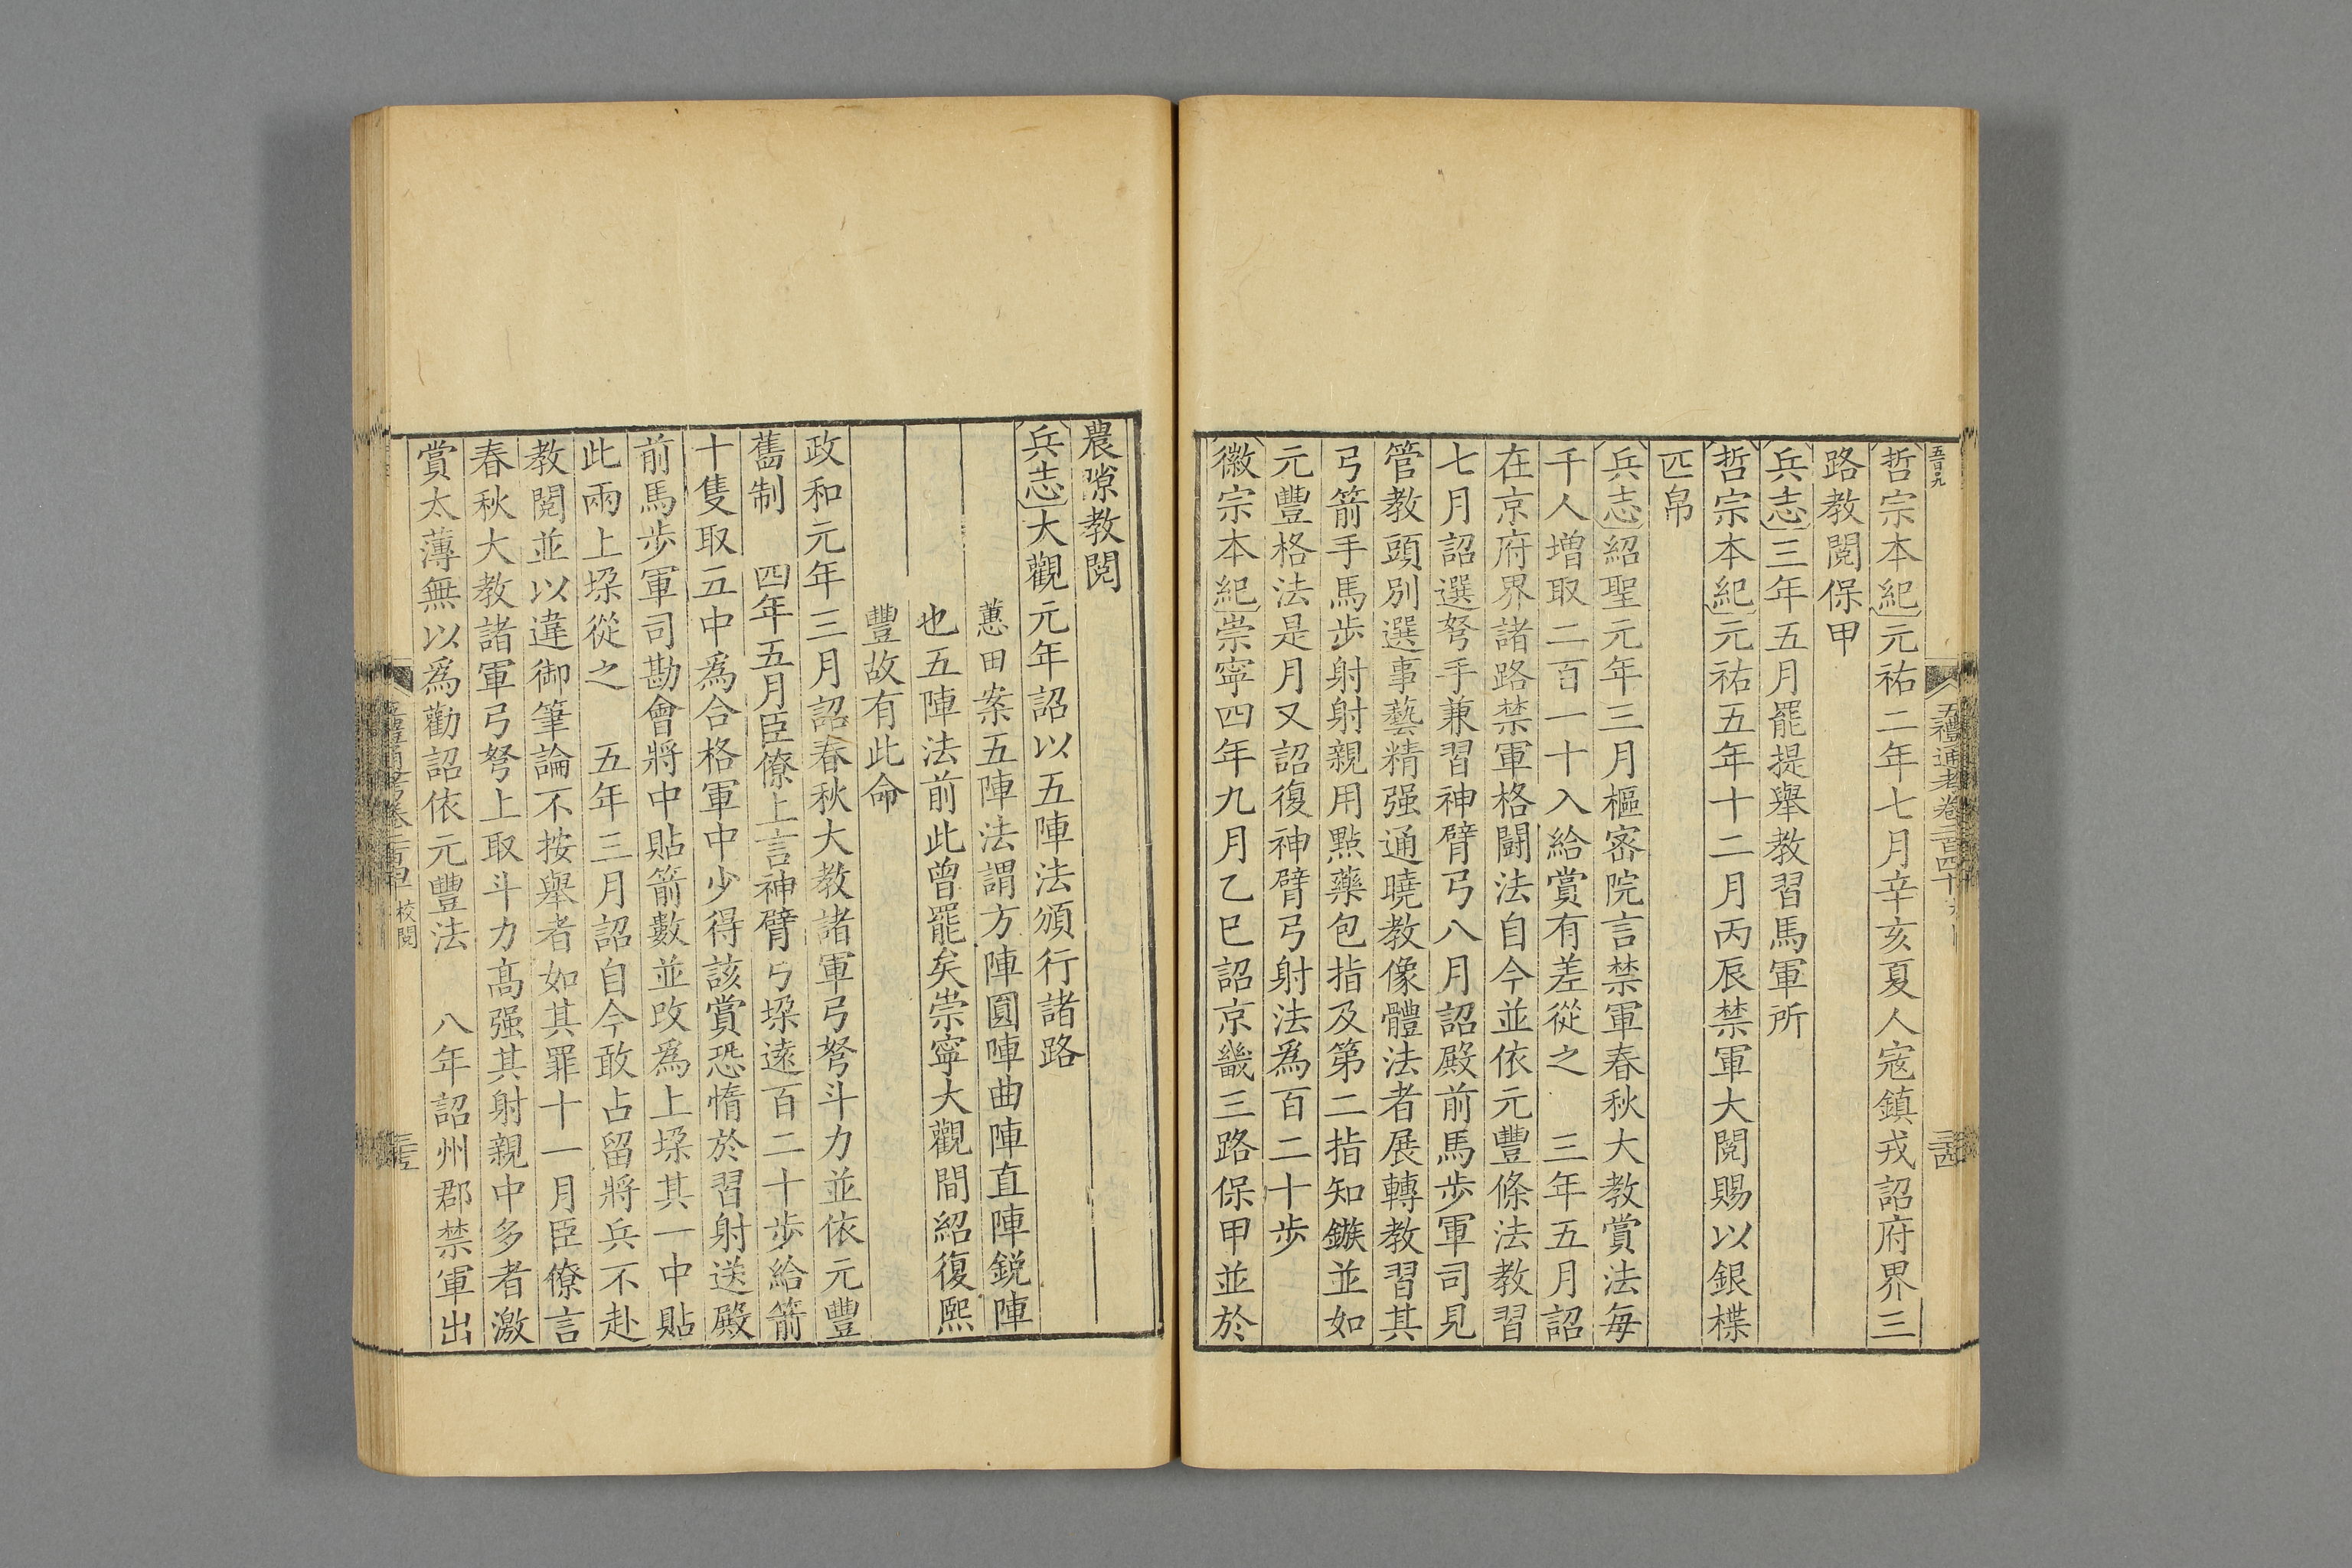 哲宗本紀元祐二年七月辛亥夏人寇鎮戎詔府界三
路教閱保甲
兵志三年五月罷提舉教習馬軍所
哲宗本紀元祐五年十二月丙辰禁軍大閱賜以銀楪
匹帛
兵志紹聖元年三月樞密院言禁軍春秋大教賞法每
千人增取二百一十入給賞有差從之　三年五月詔
在京府界諸路禁軍格鬭法自今並依元豐條法教習
七月詔選弩手兼習神臂弓八月詔殿前馬步軍司見
管教頭別選事藝精强通曉教像體法者展轉教習其
弓箭手馬步射射親用點藥包指及第二指知鏃並如
元豐格法是月又詔復神臂弓射法為百二十步
徽宗本紀崇寧四年九月乙巳詔京畿三路保甲並於
農隙教閱
兵志大觀元年詔以五陣法頒行諸路
蕙田案五陣法謂方陣圓陣曲陣直陣銳陣
也五陣法前此曾罷矣崇寧大觀間紹復熙
豐故有此命
政和元年三月詔春秋大教諸軍弓弩斗力並依元豐
舊制　四年五月臣僚上言神臂弓垜遠百二十步給箭
十隻取五中爲合格軍中少得該賞恐惰於習射送殿
前馬步軍司勘會將中貼箭數並改爲上垜其一中貼
此兩上垜從之　五年三月詔自今敢占留將兵不赴
教閱並以違御筆論不按舉者如其罪十一月臣僚言
春秋大教諸軍弓弩上取斗力高强其射親中多者激
賞太薄無以爲勸詔依元豐法　八年詔州郡禁軍出
五禮通考卷二百四十
校閱